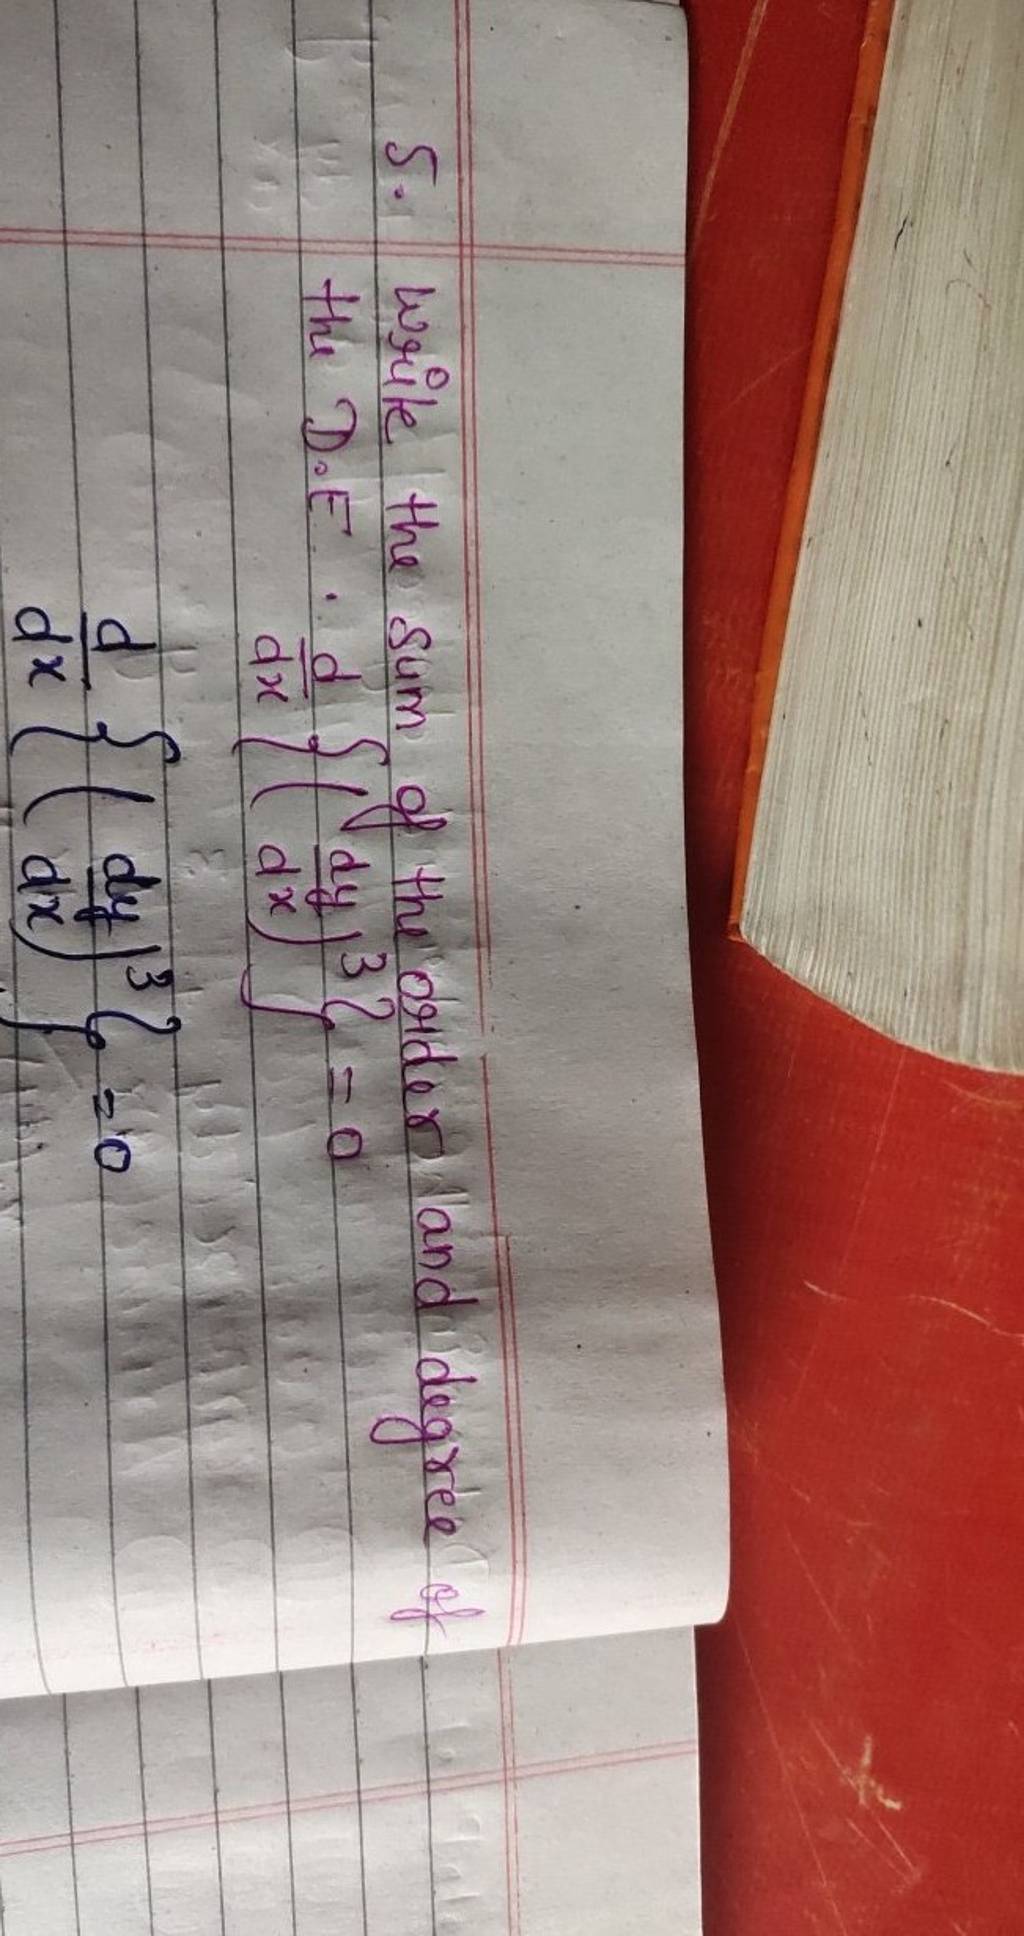 5. Write the sum of the order and degree of
the D.E. d/dx {(dy/dx)^3} = 0
d/dx {(dy/dx)^3} = 0